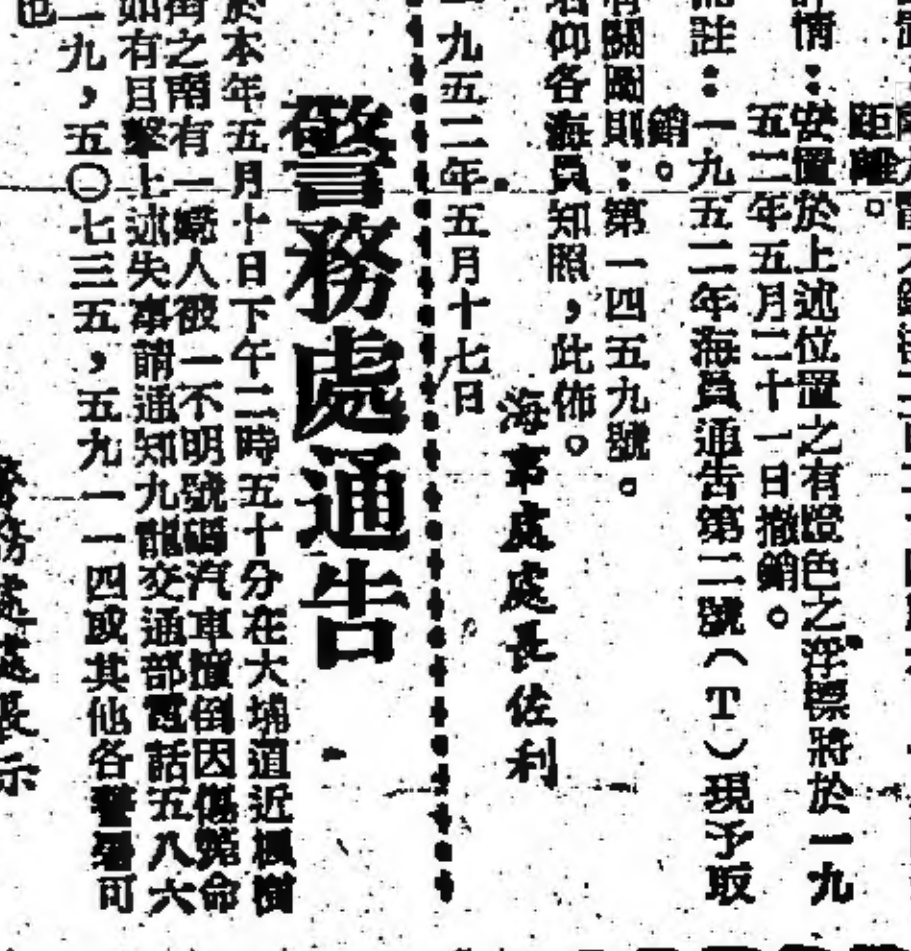 距離。
詳情：安置於上述位置之有燈色之浮標將於一九
五二年五月二十一日撤銷。
註：一九五二年海員通告第二號（T）現予取
銷。
有關圖則：第一四五九號。
仰各海員知照，此佈。
海事處處長佐利
一九五二年五月十七日
警務處通告
於本年五月十日下午二時五十分在大埔道近楓樹
街之南有一婦人被一不明號碼汽車撞倒因傷斃命
如有目擊上述失事請通知九龍交通部電話五八六
二九，五〇七三五，五九一一四或其他各警署可
也
警務處處長示